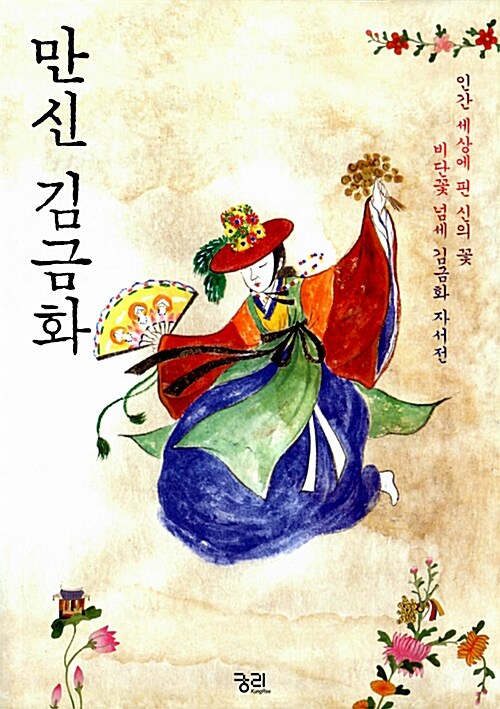 만신 김금화
인간 세상에 핀 신의 꽃
비단꽃 넘세 김금화 자서전
궁리
KungRee